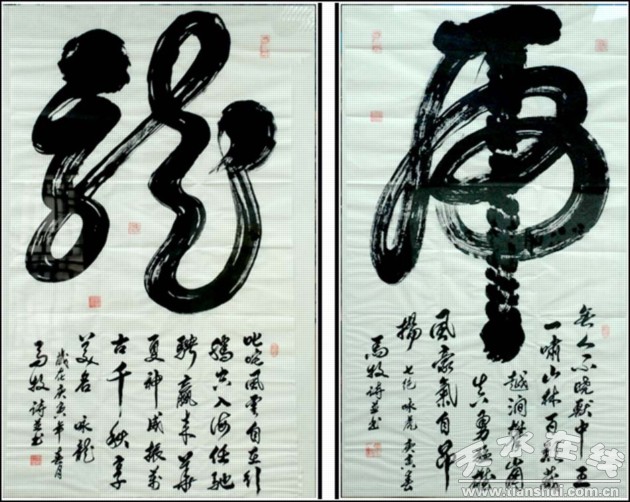 龍
叱咤風雲自在引
騰空入海任馳
騁贏来華
夏神威振萬
古千秋享
美名 咏龍
歲在庚寅年春月
馬牧诗并书
虎
無人不曉獸中王
一嘯山林百獸藏
越澗攀崗
真勇猛雄
風豪氣自昂
揚 七绝 咏虎 庚寅春
馬牧诗并书
天水在线
www.tianshui.com.cn